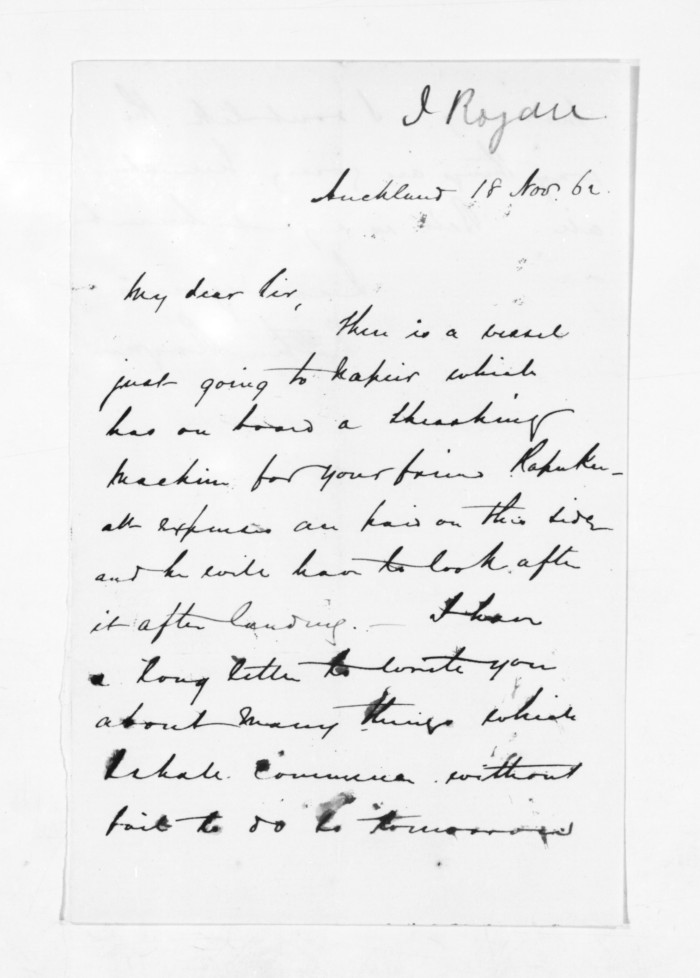 J Rogan
Auckland 18 Nov. 62.
My dear Sir,
There is a vessel
just going to Napier which
has on board a thrashing
Machine for your friend
all expenses are paid on this side
and he will have to look after
it after landing. — I have
a long letter to write you
about many things which
I shall commence without
fail to do so tomorrow